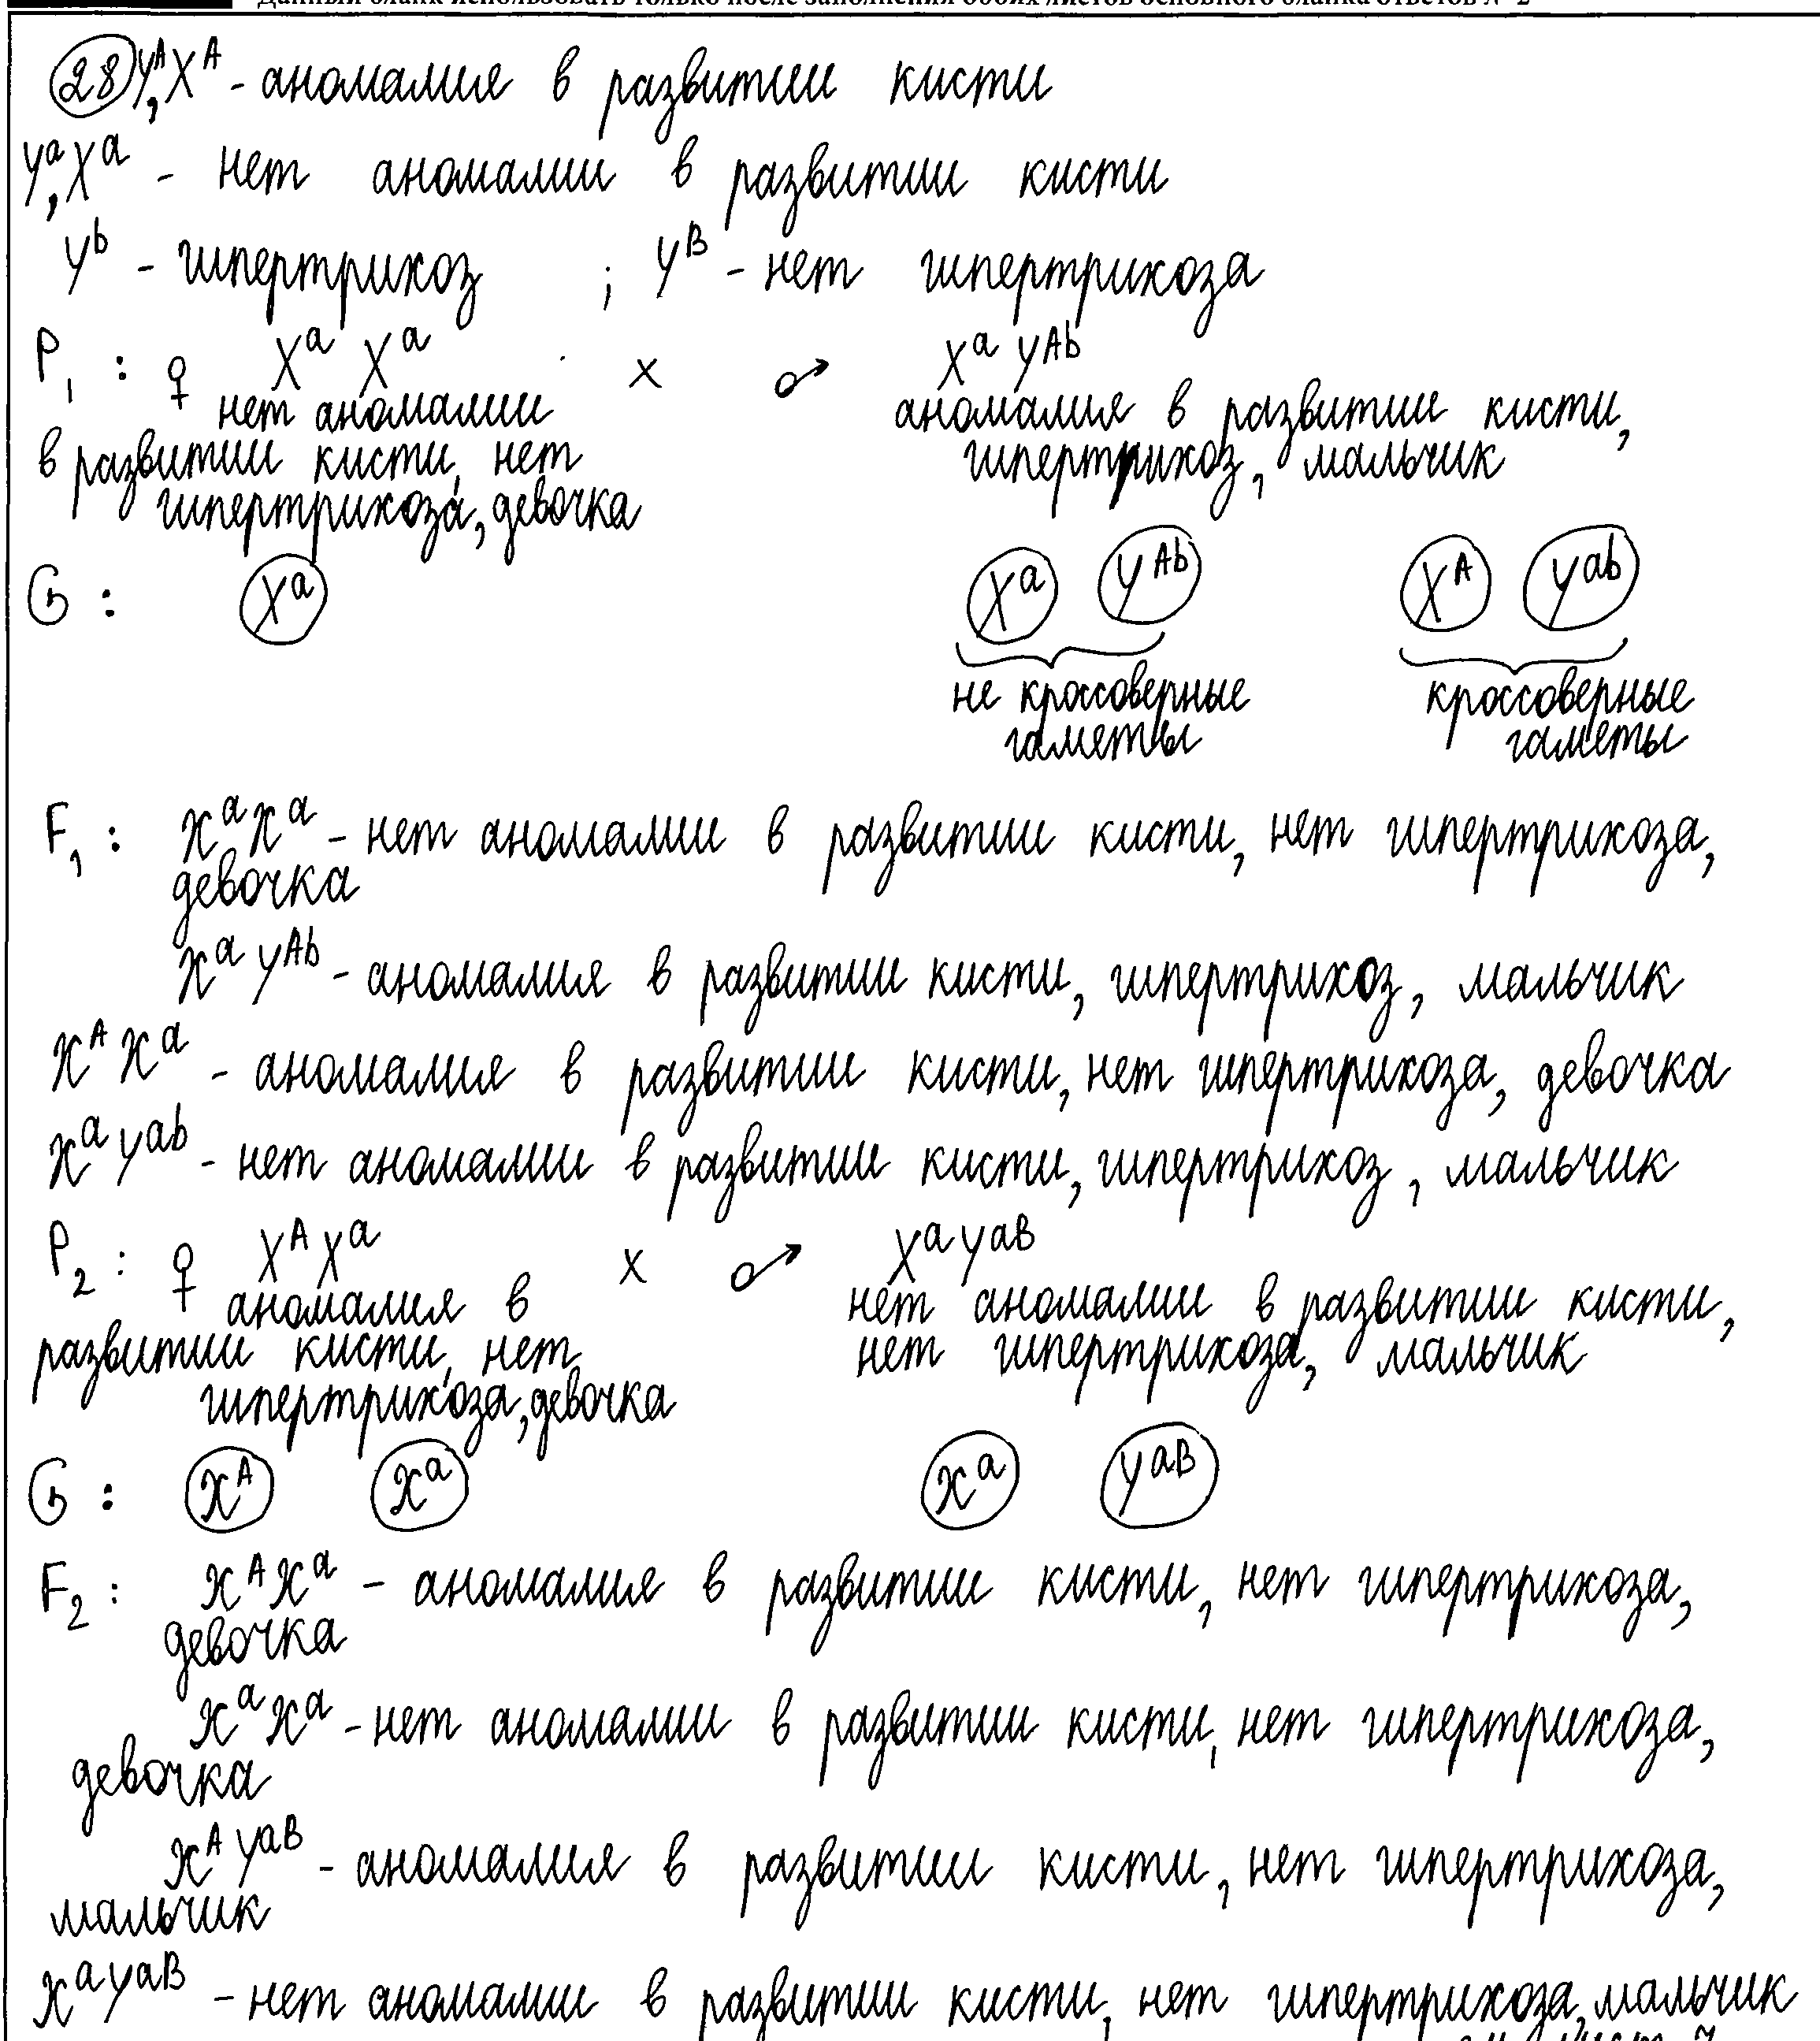 Данный бланк использовать только после заполнения обоих листов основного бланка ответов № 2
(28) Y^A, X^A - аномалия в развитии кисти
Y^a, X^a - нет аномалии в развитии кисти
Y^b - гипертрихоз ; Y^B - нет гипертрихоза
P₁ : ♀ X^a X^a x ♂ X^a Y^Ab
нет аномалии аномалия в развитии кисти,
в развитии кисти, нет гипертрихоз, мальчик
гипертрихоза, девочка
G : X^a X^a Y^Ab X^A Y^ab
не кроссоверные кроссоверные
гаметы гаметы
F₁ : X^a X^a - нет аномалии в развитии кисти, нет гипертрихоза,
девочка
X^a Y^Ab - аномалия в развитии кисти, гипертрихоз, мальчик
X^A X^a - аномалия в развитии кисти, нет гипертрихоза, девочка
X^a Y^ab - нет аномалии в развитии кисти, гипертрихоз, мальчик
P₂ : ♀ X^A X^a x ♂ X^a Y^aB
аномалия в нет аномалии в развитии кисти,
развитии кисти, нет нет гипертрихоза, мальчик
гипертрихоза, девочка
G : X^A X^a X^a Y^aB
F₂ : X^A X^a - аномалия в развитии кисти, нет гипертрихоза,
девочка
X^a X^a - нет аномалии в развитии кисти, нет гипертрихоза,
девочка
X^A Y^aB - аномалия в развитии кисти, нет гипертрихоза,
мальчик
X^a Y^aB - нет аномалии в развитии кисти, нет гипертрихоза, мальчик